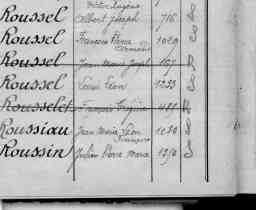 Victor Eugène
Roussel Albert Joseph 716 S
Roussel François Pierre Germain 1029 S
Roussel Jean Marie Joseph 167 R
Roussel Louis Léon 1233 S
Rousselet François 481 R
Roussiau Jean Marie Léon François 1280 S
Roussin Julien Pierre Marie S